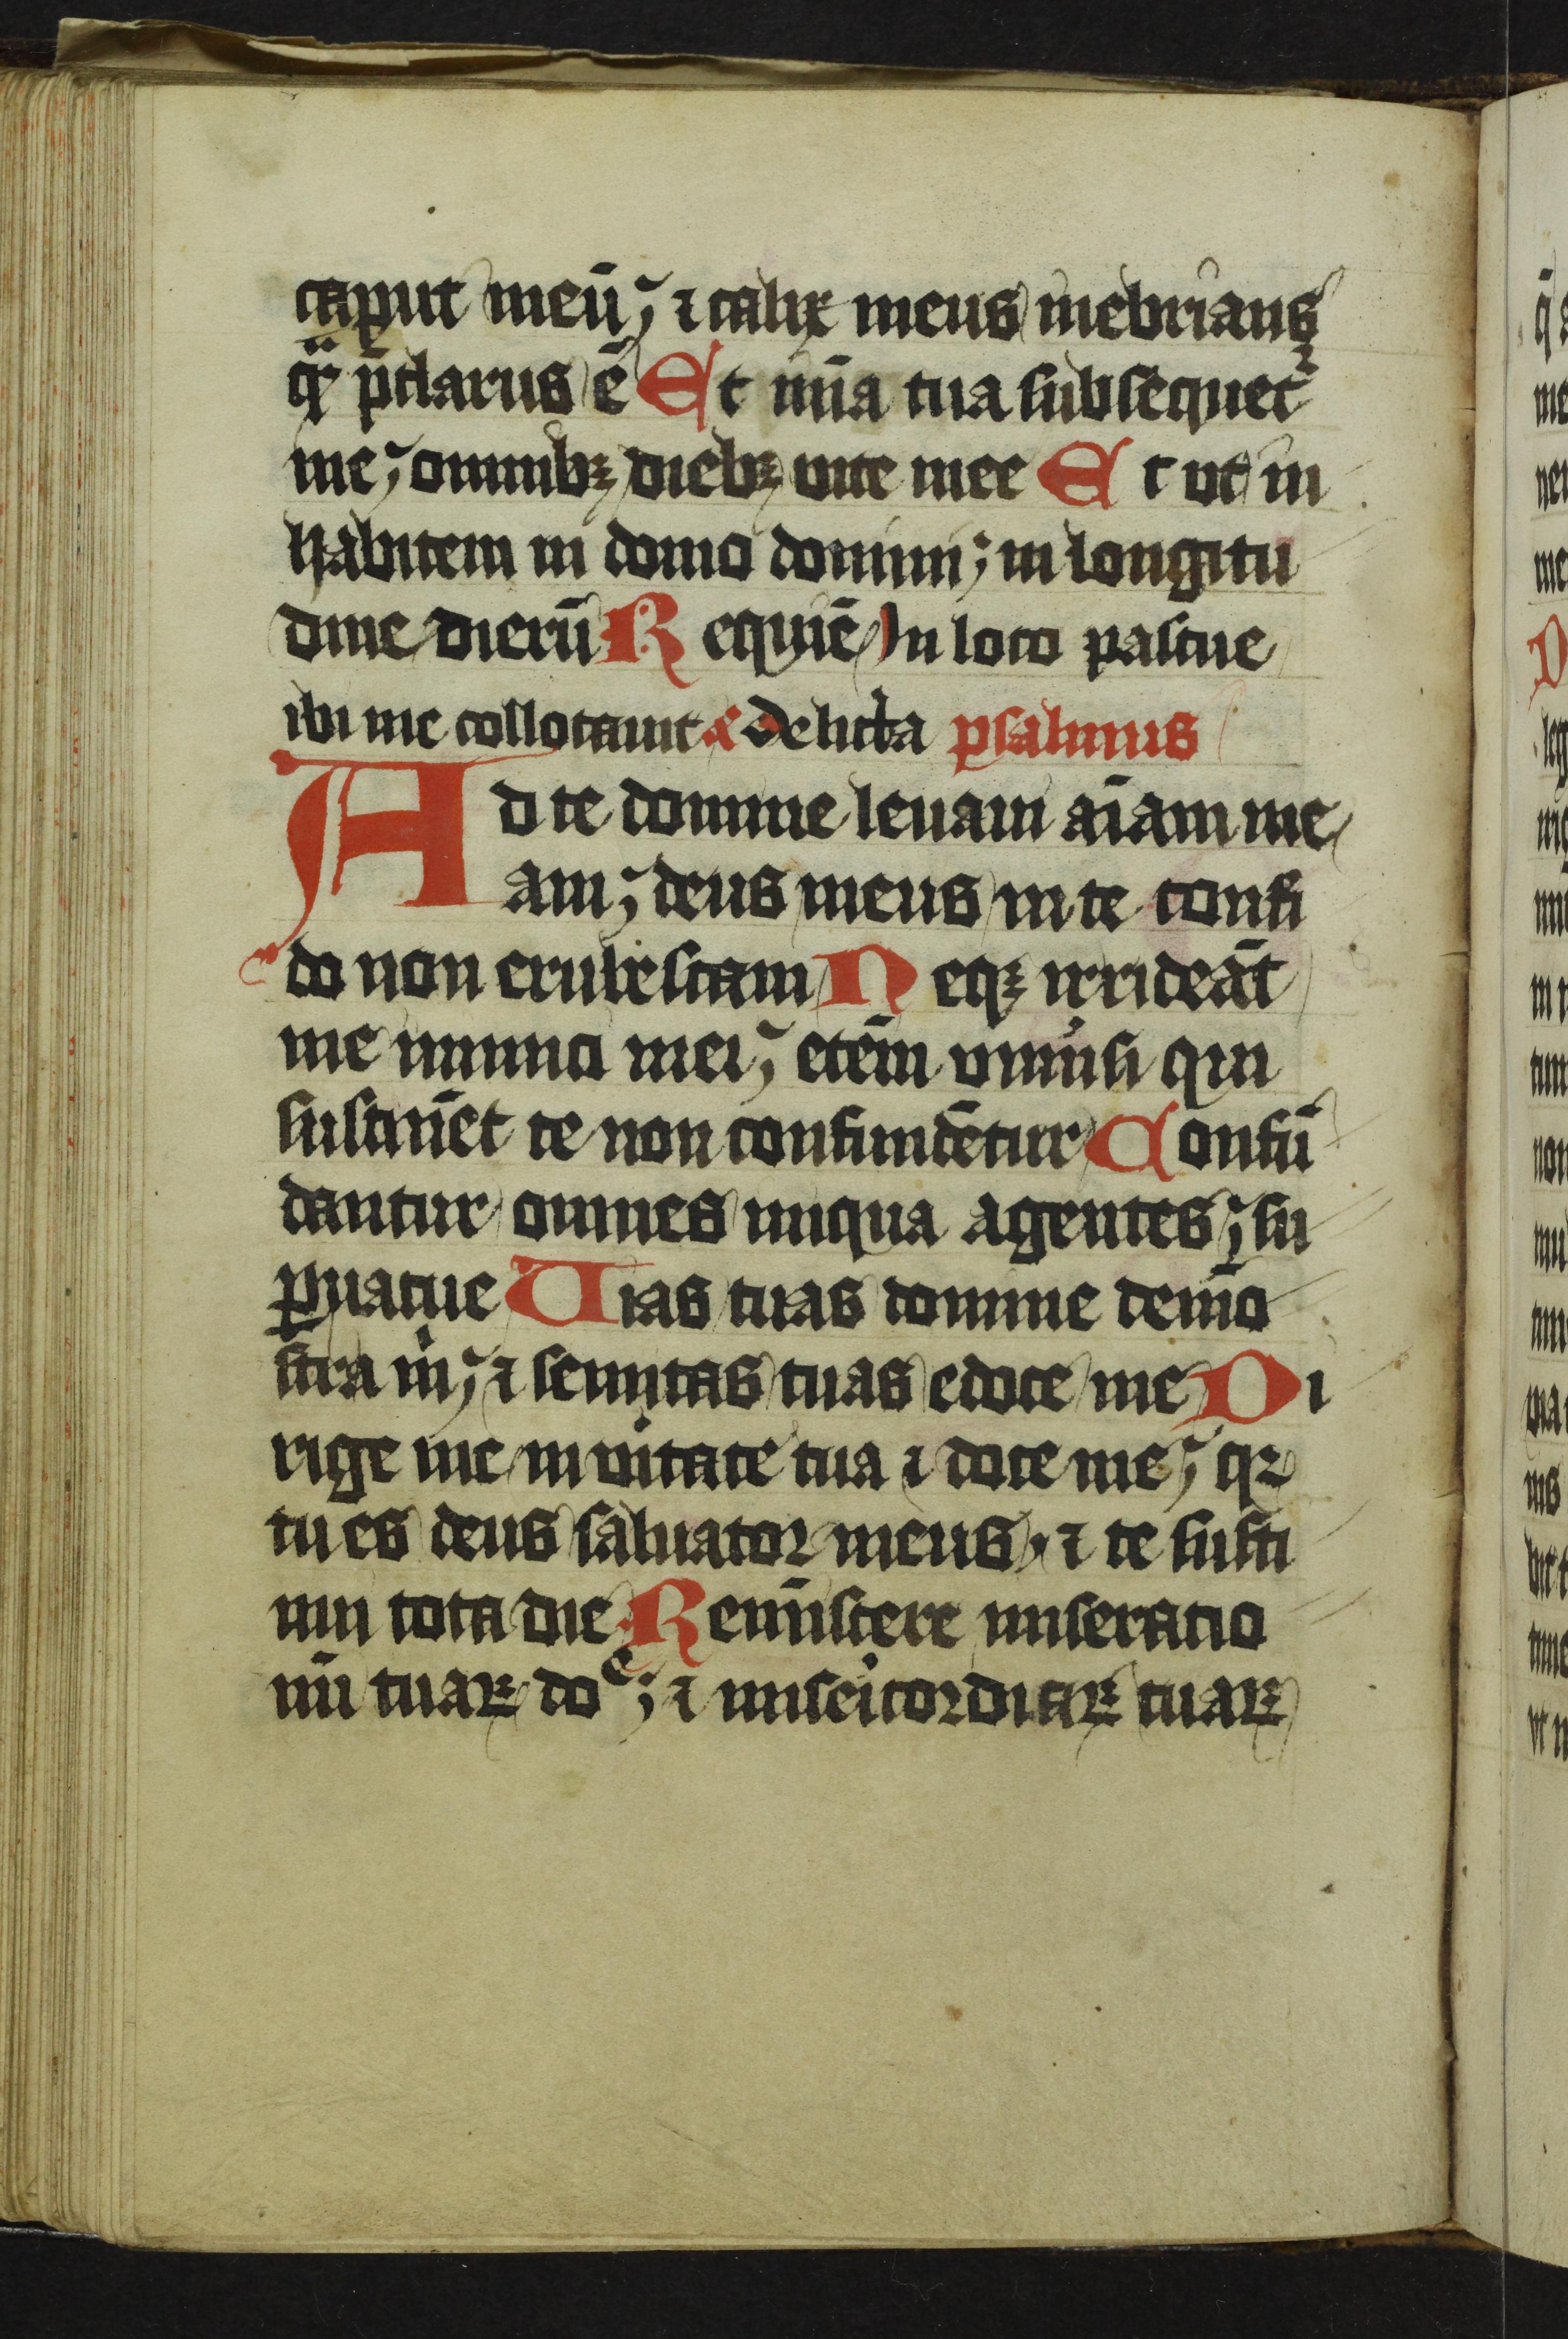 caput meū; ⁊ calix meus inebrians
qͣ p̄clarus ē Et mīa tua subsequet᷑
me; omnibꝫ diebꝫ vite mee Et vt in
habitem in domo domini; in longitu
dine dierū Requiē In loco pascue
ibi me collocauit a Delicta psalmus
Ad te domine leuaui aīam me
am; deus meus in te confi
do non erubescam Neqꝫ irrideāt
me inimici mei; etēīm vniūsi qui
sustinēt te non confundētur Confū
dantur omnes iniqua agentes; su
ꝑuacue Vias tuas domine demō
stra m̄; ⁊ semitas tuas edoce me Di
rige me in vitate tua ⁊ doce me; qꝛ
tu es deus saluator meus, ⁊ te susti
nui tota die Reminiscere miseratio
nū tuaꝝ doᵉ; ⁊ misericordiaꝝ tuaꝝ